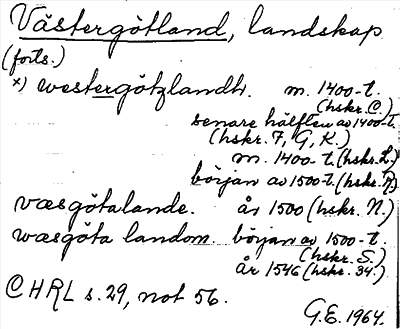 Västergötland, landskap
(forts.)
x) westergötzlandh. m. 1400-t.
(hskr. C)
senare hälften av 1400-t.
(hskr. F, G, K.)
m. 1400-t. (hskr. L.)
början av 1500-t. (hskr. R)
væsgötalande. år 1500 (hskr. N.)
wæsgöta landom. början av 1500-t.
(hskr. S.)
år 1546 (hskr. 34.)
CHRL s. 29, not 56.
G.E. 1964.